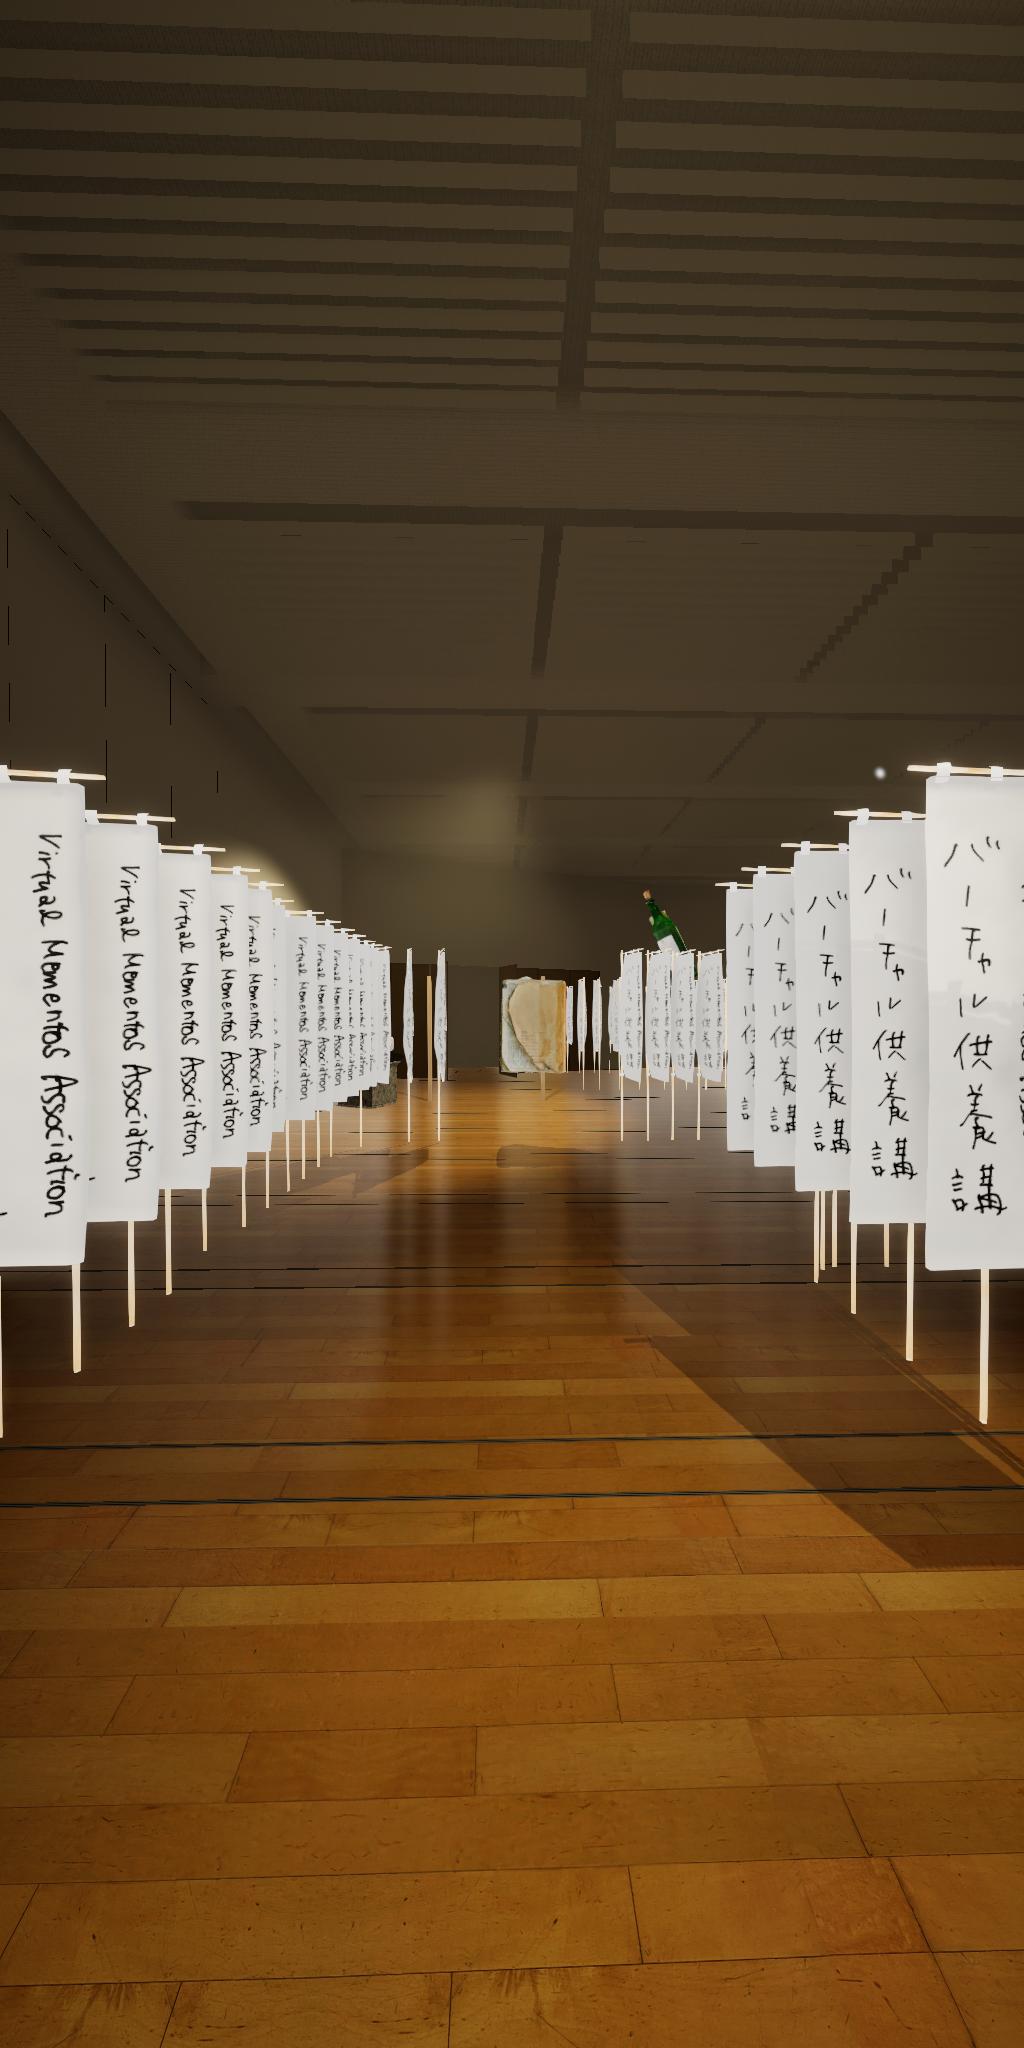 Virtual Mementos Association
Virtual Mementos Association
Virtual Mementos Association
Virtual Mementos Association
Virtual Mementos Association
Virtual Mementos Association
Virtual Mementos Association
Virtual Mementos Association
バーチャル供養講
バーチャル供養講
バーチャル供養講
バーチャル供養講
バーチャル供養講